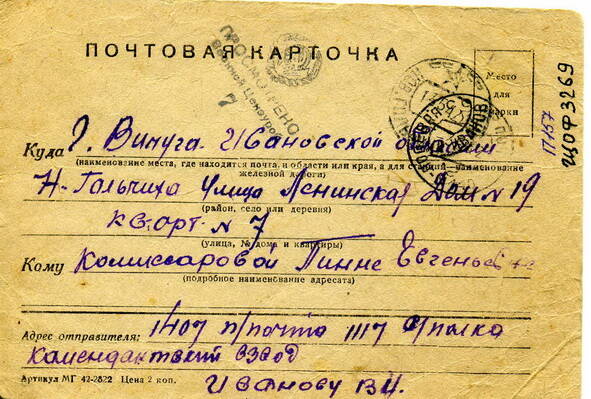 ПОЧТОВАЯ КАРТОЧКА
ПРОСМОТРЕНО
Военной Цензурой
7
Место
для
марки
П157
ЩОФ3269
Куда г. Вичуга. Ивановской области
(наименование места, где находится почта, и области или края, а для станций—наименование
железной дороги)
Н-Гольчиха улица Ленинская Дом № 19
(район, село или деревня)
кварт. № 7
(улица, № дома и квартиры)
Кому Комиссаровой Пинне Евгеньевне
(подробное наименование адресата)
Адрес отправителя: 1407 п/почта 1117 с/полка
комендантский взвод
Артикул МГ 42-2822 Цена 2 коп.
Иванову В.И.